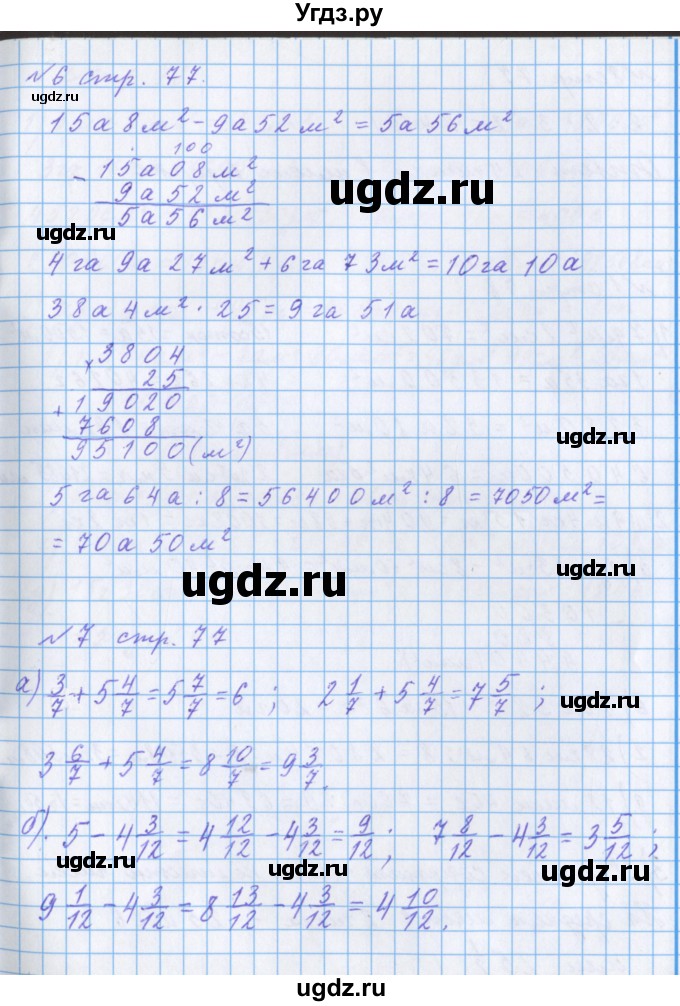 Угдз.ру
№6 стр. 77.
ugdz.ru
15а 8м² - 9а 52м² = 5а 56м²
100
- 15а 08м²
9а 52м²
5а 56м²
ugdz.ru
ugdz.ru
4га 9а 27м² + 6га 73м² = 10га 10а
38а 4м² · 25 = 9га 51а
× 3804
25
+ 19020
7608
95100 (м²)
ugdz.ru
5га 64а : 8 = 56400м² : 8 = 7050м² =
= 70а 50м²
ugdz.ru
ugdz.ru
№7 стр. 77
а) 3/7 + 5 4/7 = 5 7/7 = 6 ; 2 1/7 + 5 4/7 = 7 5/7 ;
ugdz.ru
3 6/7 + 5 4/7 = 8 10/7 = 9 3/7.
б). 5 - 4 3/12 = 4 12/12 - 4 3/12 = 9/12 ; 7 8/12 - 4 3/12 = 3 5/12 ;
ugdz.ru
ugdz.ru
ugdz.ru
9 1/12 - 4 3/12 = 8 13/12 - 4 3/12 = 4 10/12.
ugdz.ru